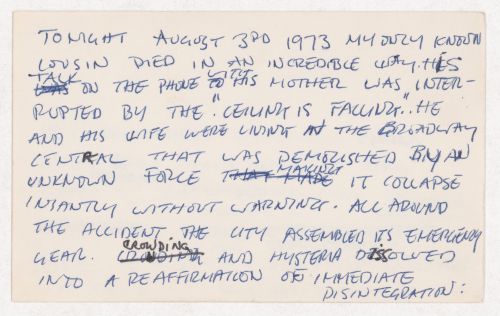 TONIGHT AUGUST 3RD 1973 MY ONLY KNOWN
COUSIN DIED IN AN INCREDIBLE WAY. HIS
TALK ON THE PHONE WITH HIS MOTHER WAS INTER-
RUPTED BY THE "CEILING IS FALLING". HE
AND HIS WIFE WERE LIVING IN THE BROADWAY
CENTRAL THAT WAS DEMOLISHED BY AN
UNKNOWN FORCE THAT MADE MAKING IT COLLAPSE
INSANTLY WITHOUT WARNING. ALL AROUND
THE ACCIDENT THE CITY ASSEMBLED ITS EMERGENCY
GEAR. CROWDING AND HYSTERIA DISSOLVED
INTO A REAFFIRMATION OF IMMEDIATE
DISINTEGRATION: